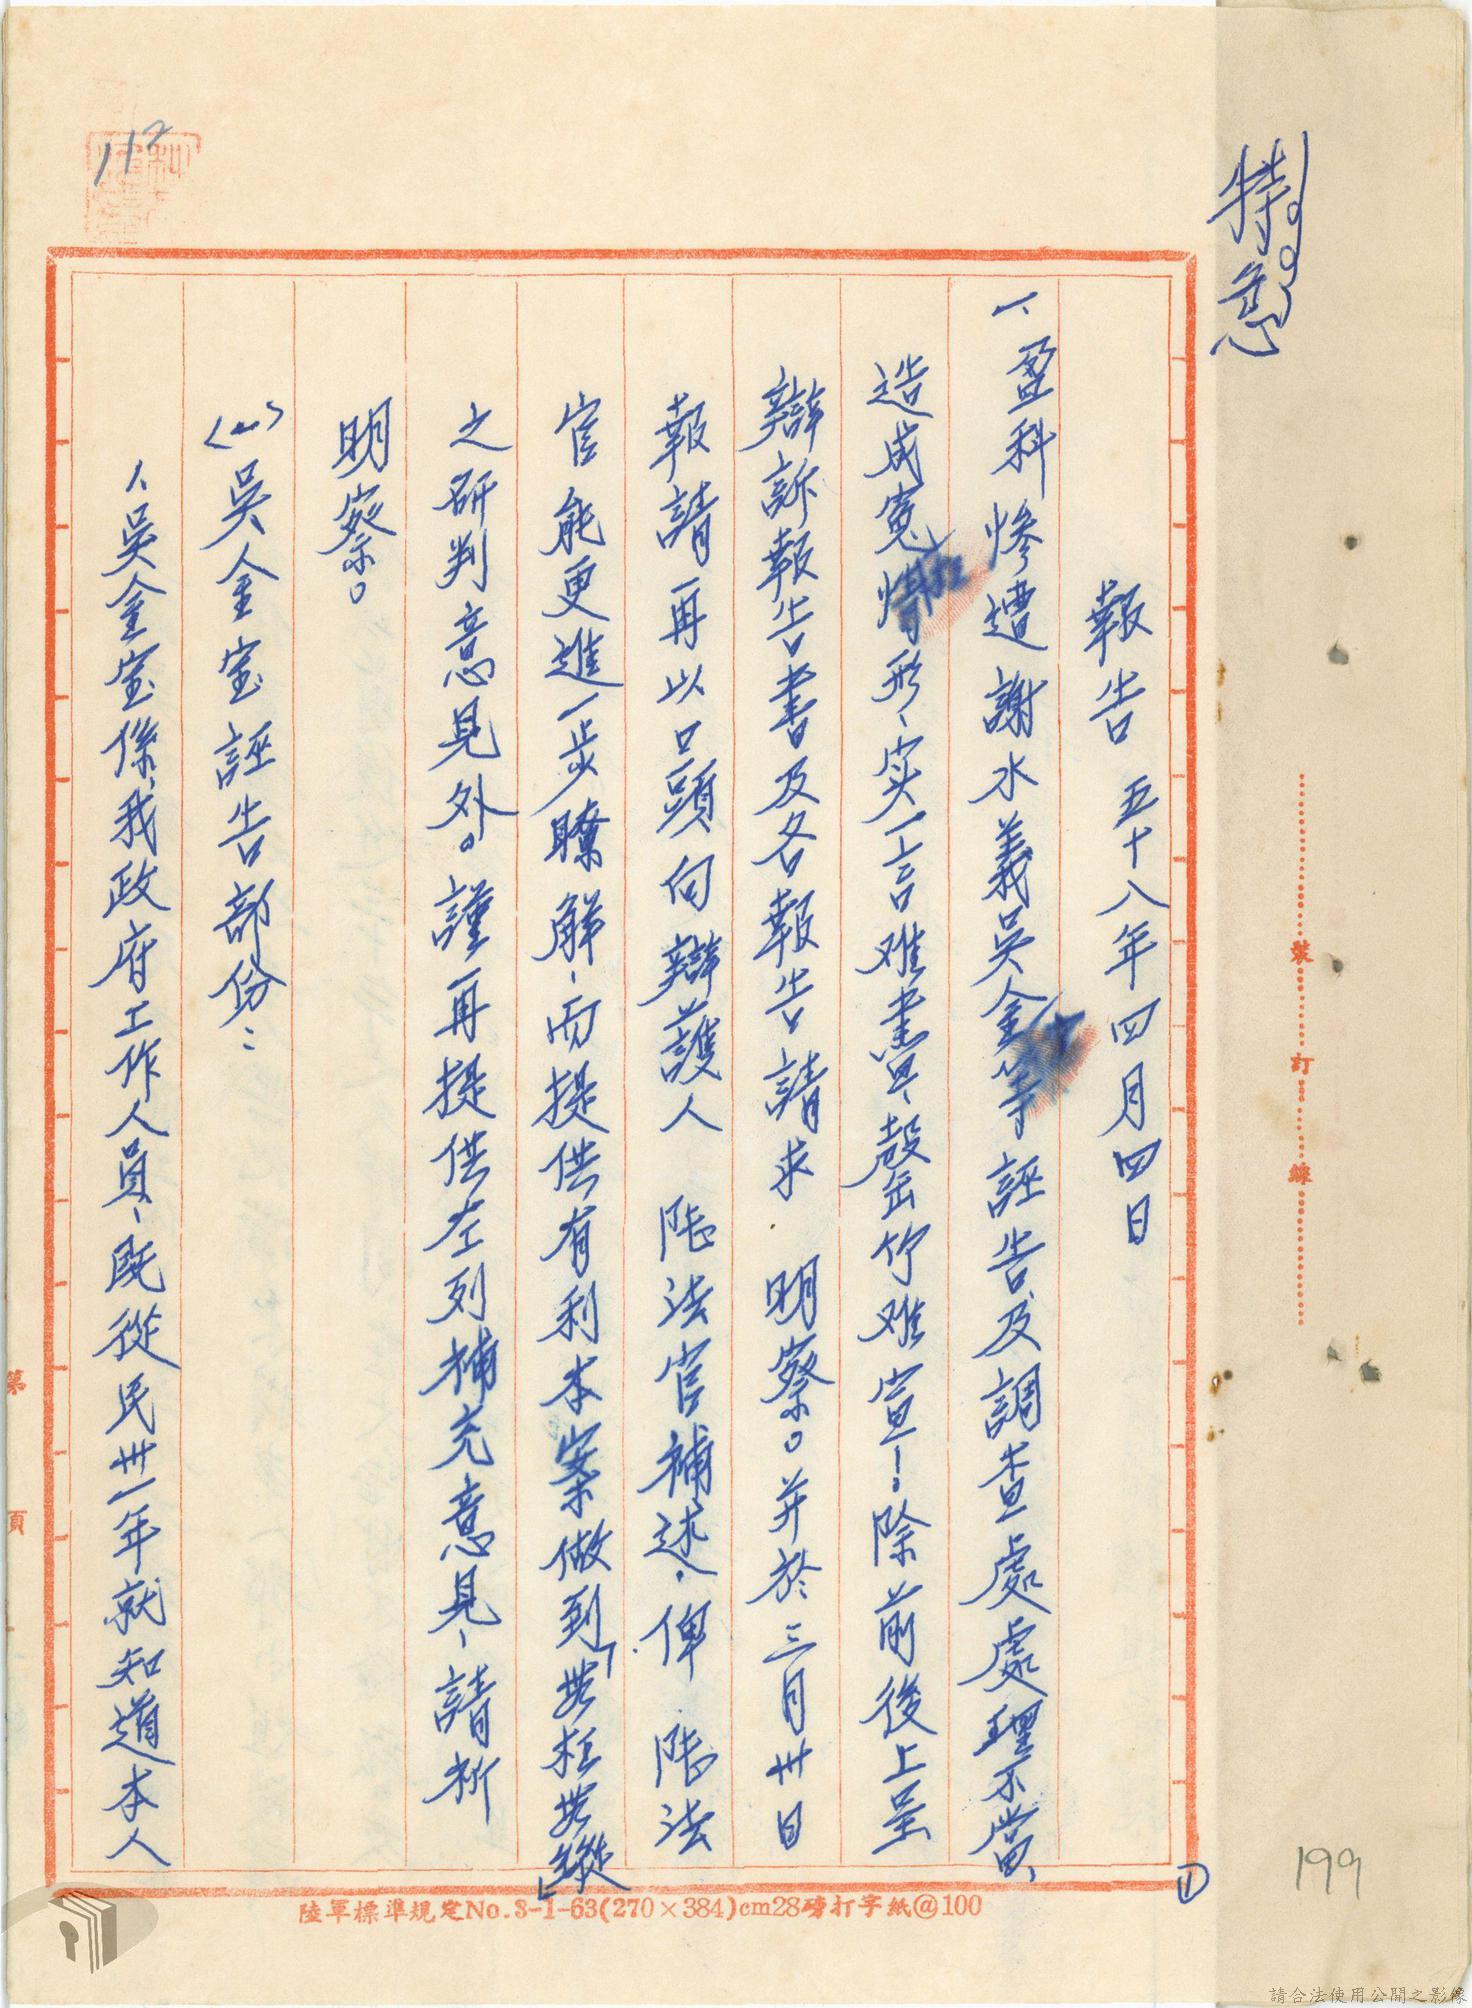 特急
報告 五十八年四月四日
一、盈科慘遭謝水義吳金等誣告及調查處處理不當、
造成冤情形、实一言难盡、罄竹难宣！除前後上呈
辯訴報告書及各報告請求 明察。并於三月卅日
報請再以口頭向辯護人 陸法官補述、俾 陸法
官能更進一步瞭解、而提供有利本案做到「毋枉毋縱」
之研判意見外。謹再提供左列補充意見、請析
明察。
(一)吳金宝誣告部份：
1、吳金宝係我政府工作人員、既從民卅一年就知道本人
①
112
199
裝 訂 線
第 頁
陸軍標準規定No.3-1-63(270×384)cm28磅打字紙@100
請合法使用公開之影像